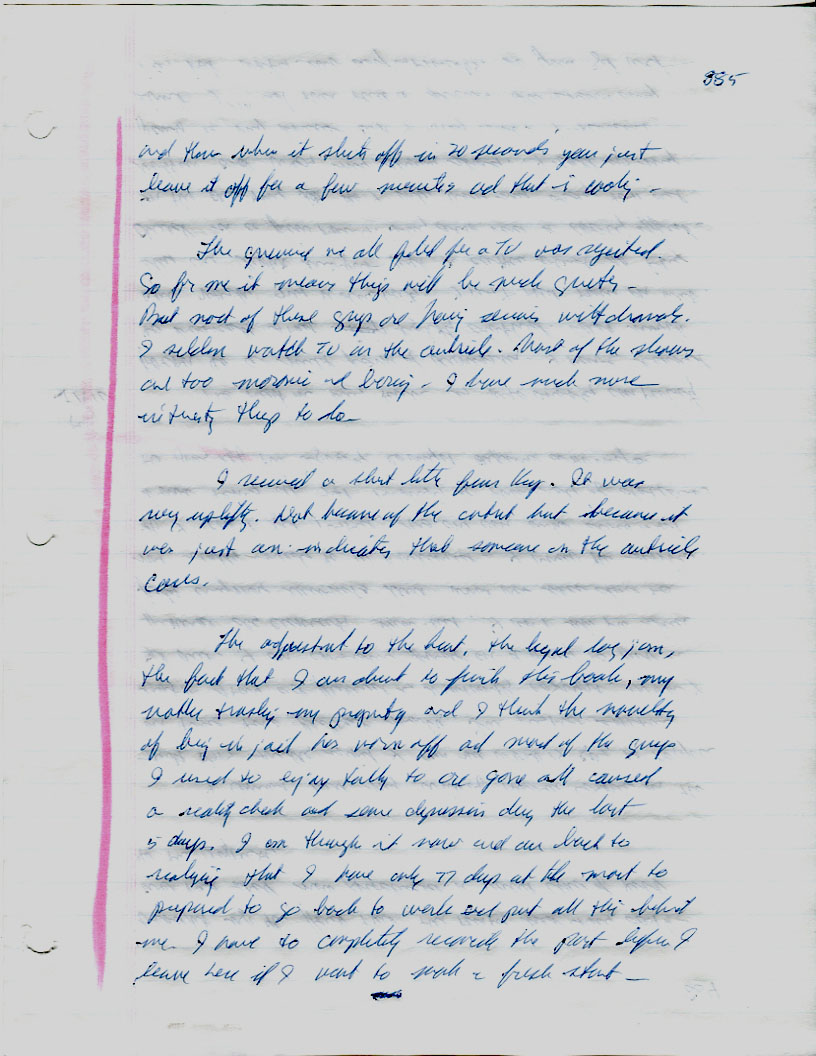 385
and then when it shuts off in 20 seconds you just
leave it off for a few minutes and that is cooling -
The grievance we all filed for a TV was rejected.
So for me it means things will be much quieter -
But most of these guys are having serious withdrawals.
I seldom watch TV on the outside. Most of the shows
are too moronic and boring - I have much more
interesting things to do -
I received a short letter from Kay. It was
very uplifting. Not because of the content but because it
was just an indication that someone on the outside
cares.
The adjustment to the heat, the legal log jam,
the fact that I am about to finish this book, my
mother trashing my property and I think the novelty
of being in jail has worn off and most of the guys
I used to enjoy talking to are gone all caused
a reality check and some depression during the last
5 days. I am through it now and am back to
realizing that I have only 77 days at the most to
prepared to go back to work and put all this behind
me. I have to completely reconcile the past before I
leave here if I want to make a fresh start -